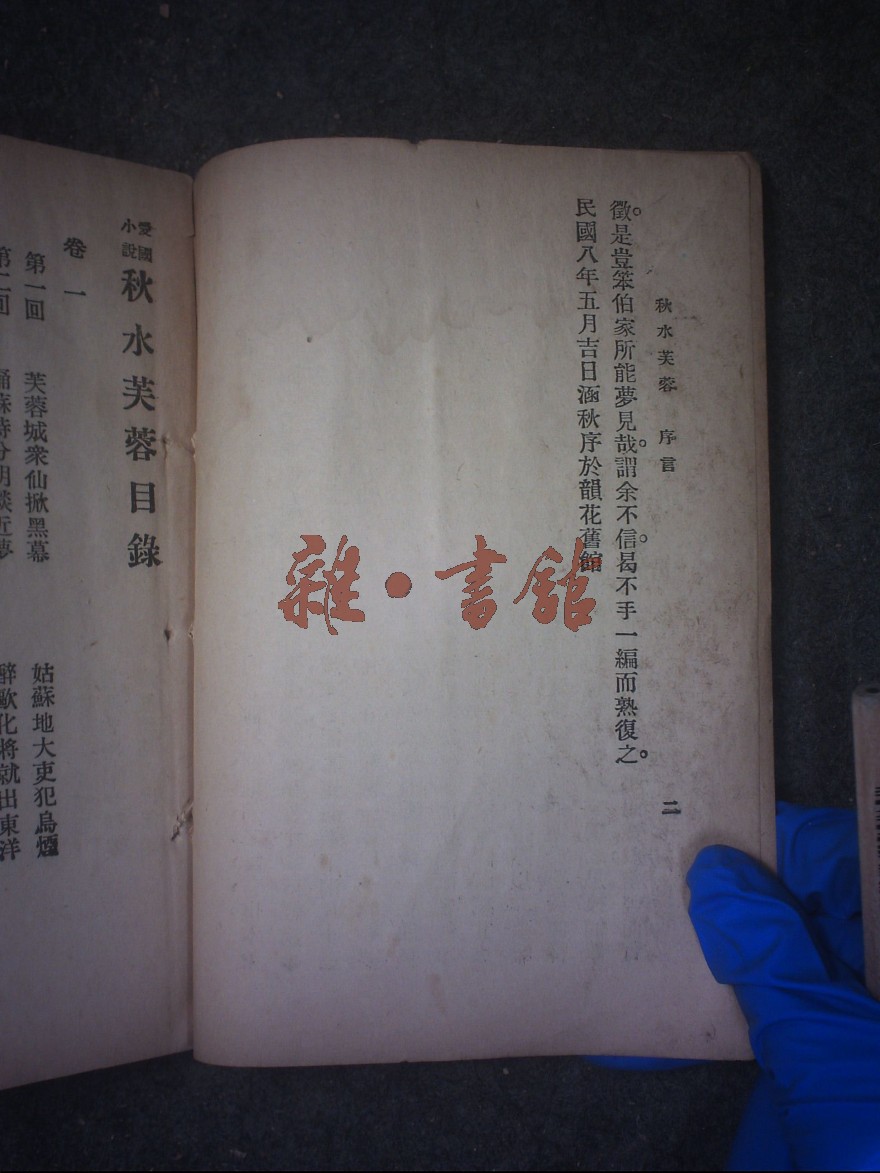 秋水芙蓉　序言
二
徵。是豈笨伯家所能夢見哉。謂余不信。曷不手一編而熟復之。
民國八年五月吉日涵秋序於韻花舊館
雜·書館
愛國小說
秋水芙蓉目錄
卷一
第一回　芙蓉城衆仙掀黑幕　姑蘇地大吏犯烏煙
第二回　誦蘇詩分明談近夢　醉歐化將就出東洋